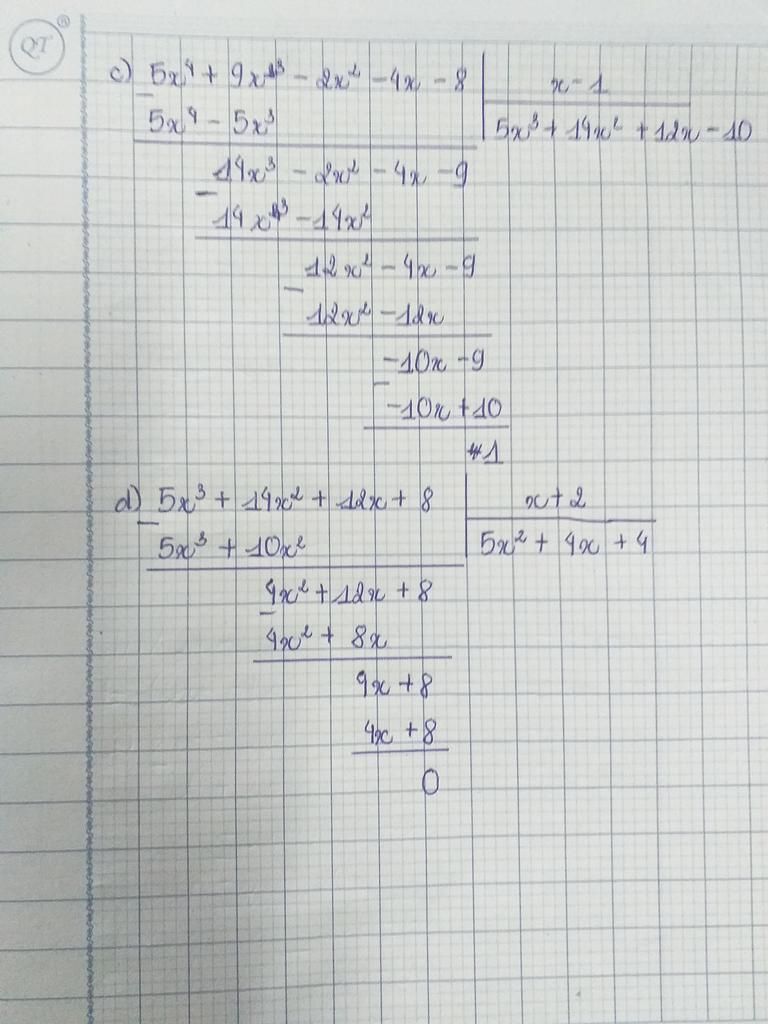 QT
c) 5x⁴ + 9x³ - 2x² - 4x - 8 | x - 1
5x⁴ - 5x³ | 5x³ + 14x² + 12x - 10
14x³ - 2x² - 4x - 9
- 14x³ - 14x²
12x² - 4x - 9
- 12x² - 12x
-10x - 9
- -10x + 10
1
d) 5x³ + 14x² + 12x + 8 | x + 2
- 5x³ + 10x² | 5x² + 4x + 4
4x² + 12x + 8
- 4x² + 8x
4x + 8
4x + 8
0